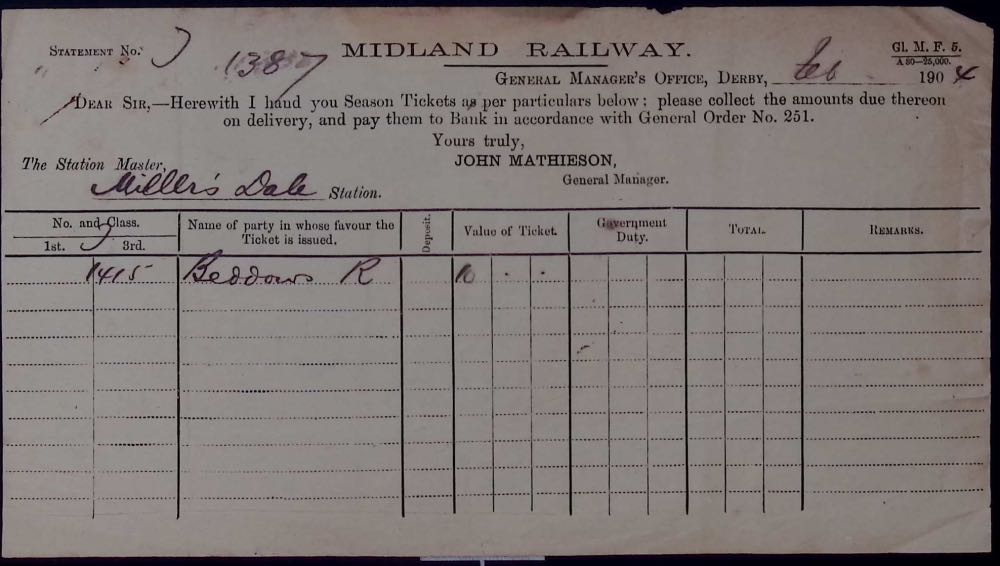 STATEMENT No.
1387
MIDLAND RAILWAY.
Gl. M. F. 5.
A 80—25,000.
GENERAL MANAGER'S OFFICE, DERBY, Feb 1904
DEAR SIR,—Herewith I hand you Season Tickets as per particulars below; please collect the amounts due thereon
on delivery, and pay them to Bank in accordance with General Order No. 251.
Yours truly,
JOHN MATHIESON,
General Manager.
The Station Master,
Miller's Dale Station.
No. and Class. Name of party in whose favour the Ticket is issued. Deposit. Value of Ticket. Government Duty. TOTAL. REMARKS.
1st. 3rd.
1415 Beddows R 10 . .